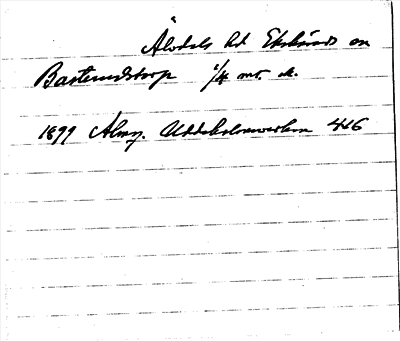 Ålvdals hd Ekshärads sn
Bastundstorp 1/4 mt. sk.
1899 Almg. Uddeholmsverken 426